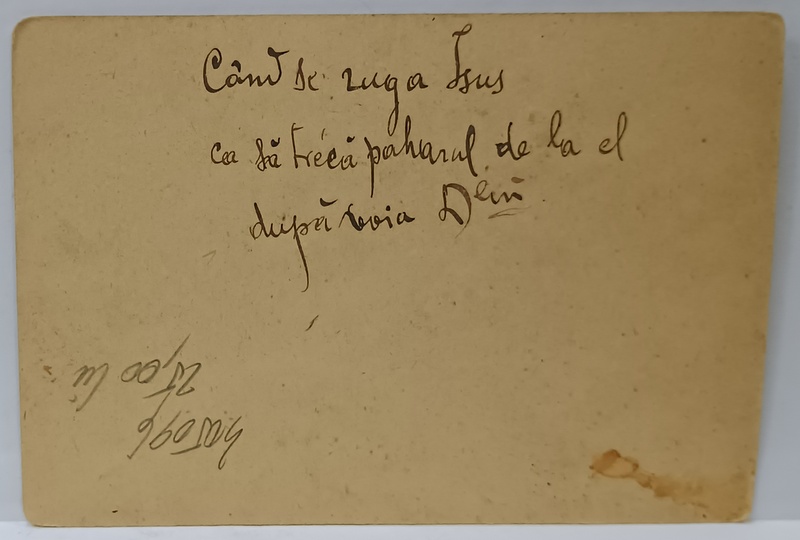 Când se ruga Isus
ca să trécă paharul de la el
după voia
25,00 lei